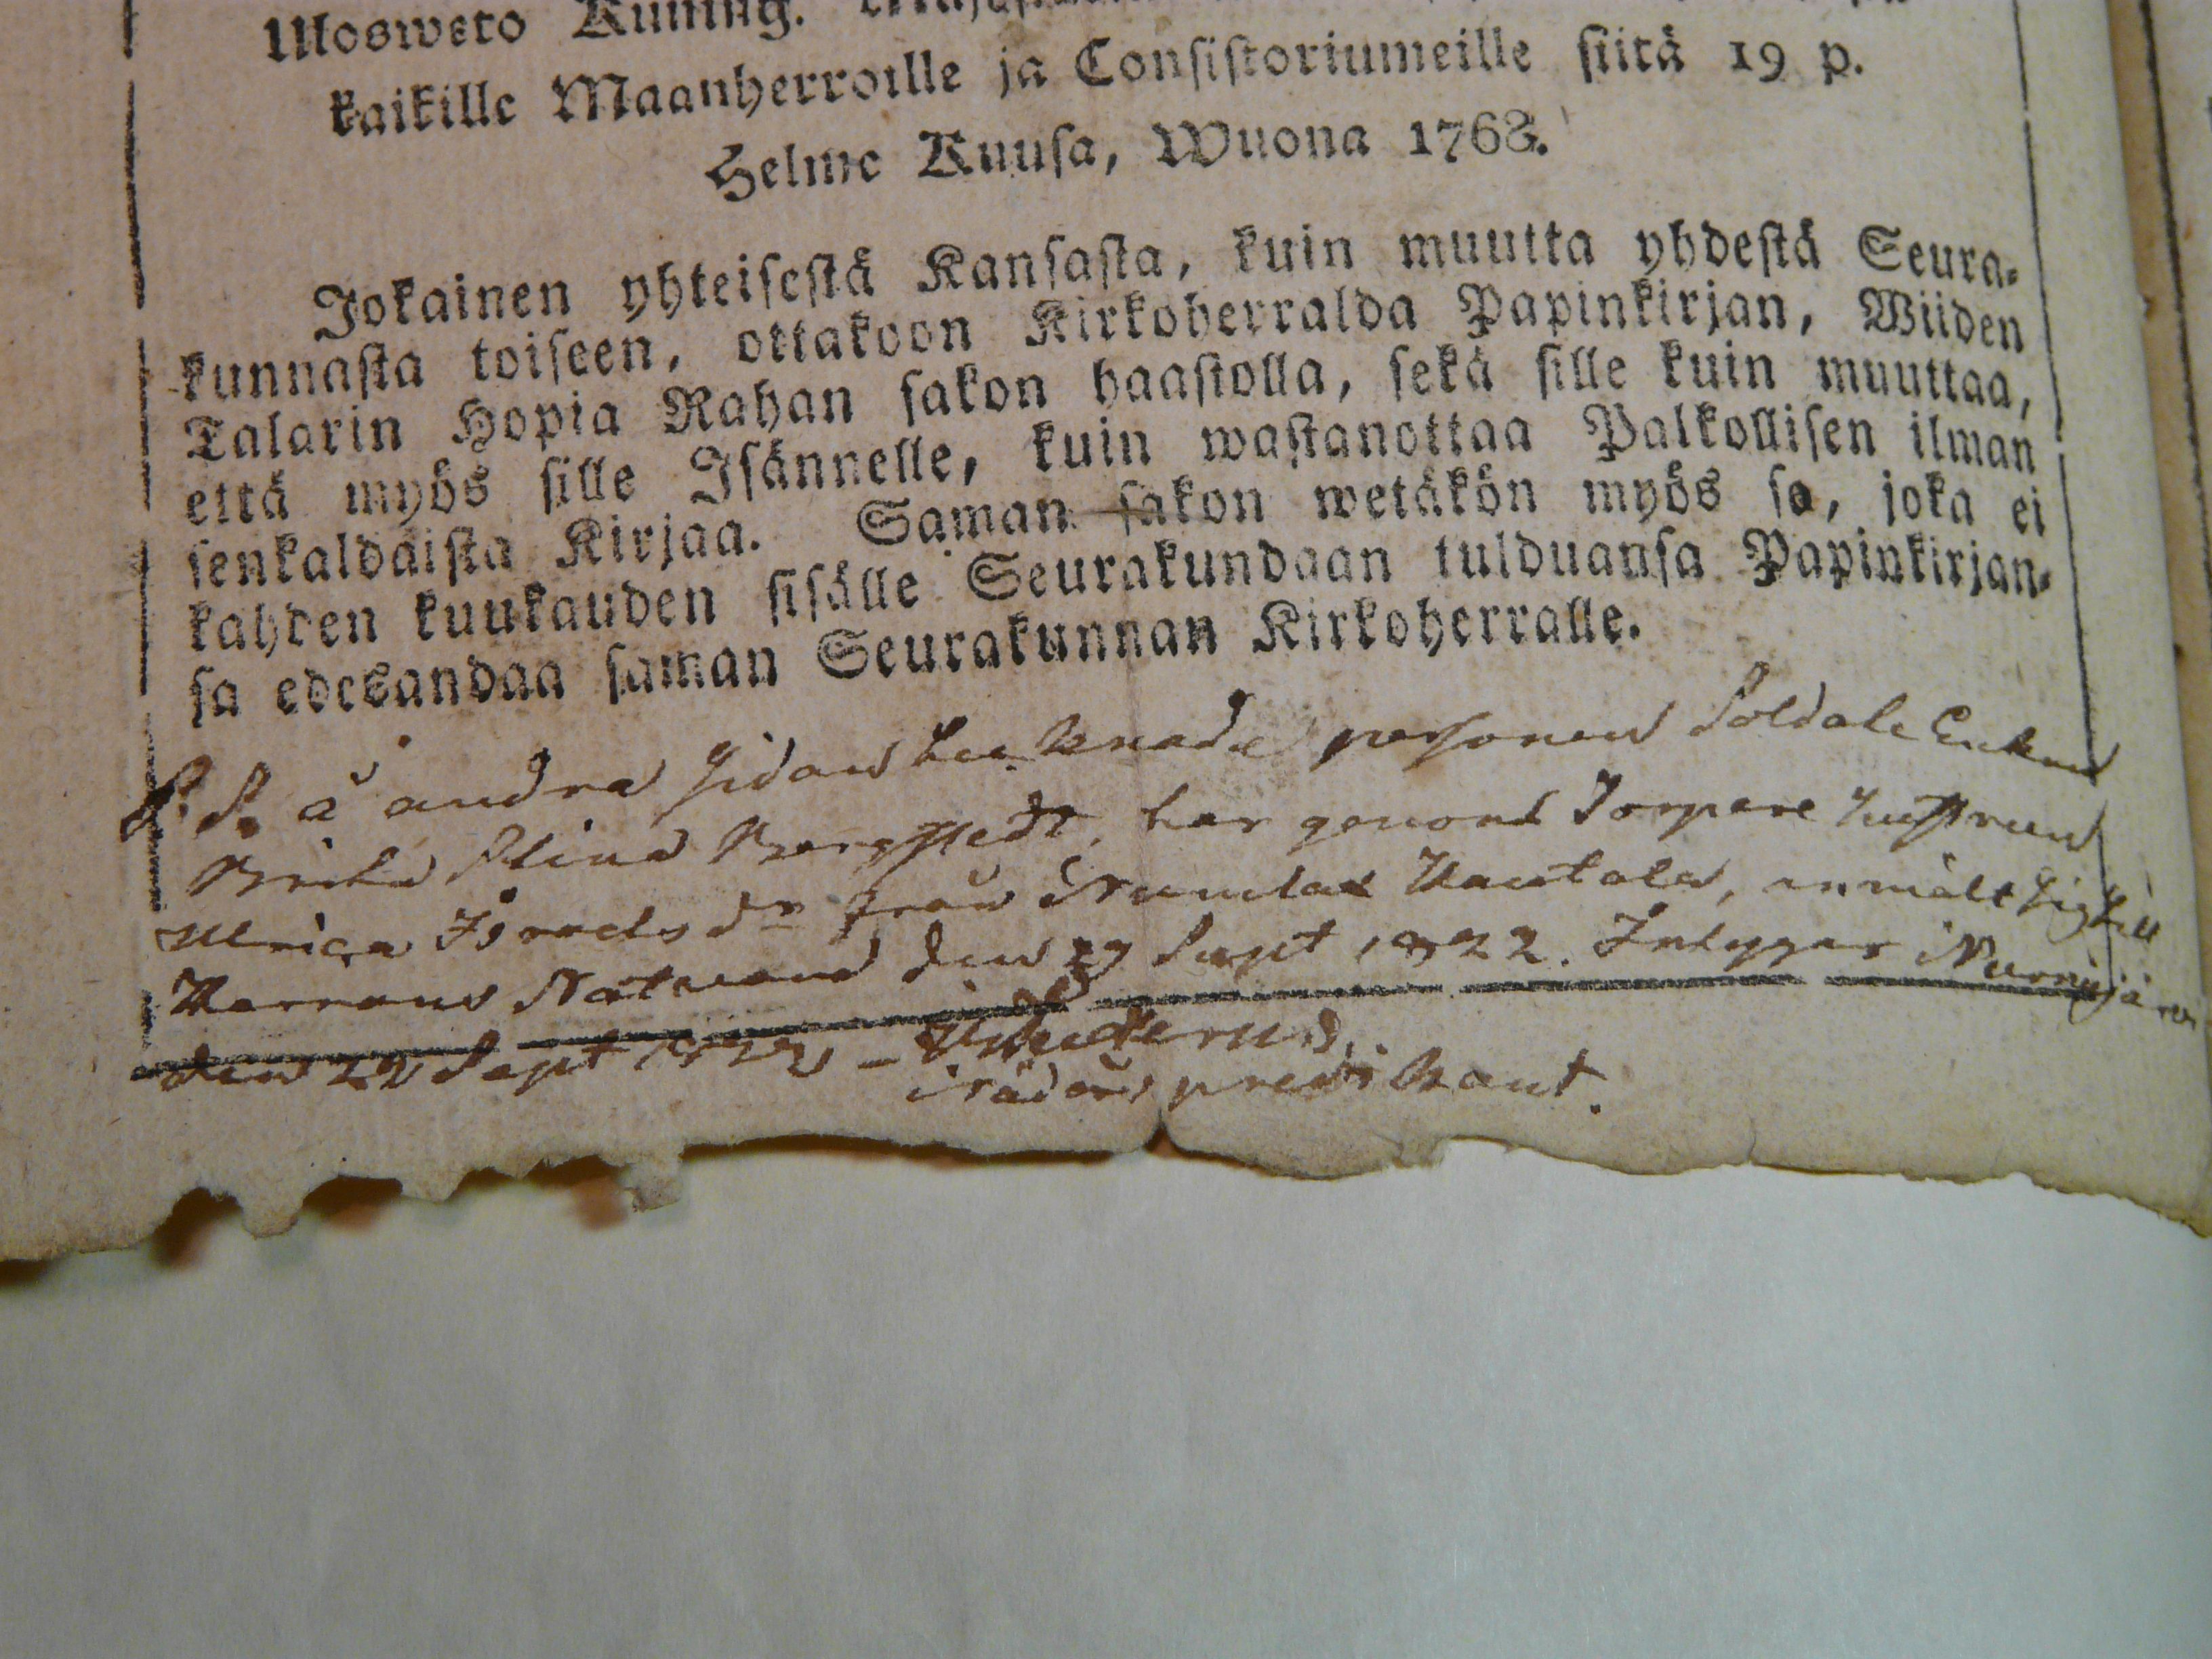 Uloswero Kuning.
kaikille Maanherroille ja Consistoriumeille siitä 19 p.
Helme Kuusa, Wuona 1768.
Jokainen yhteisestä Kansasta, kuin muutta yhdestä Seura-
kunnasta toiseen, ottakoon Kirkoherralda Papinkirjan, Wiiden
Talarin Hopia Rahan sakon haastolla, sekä sille kuin muuttaa,
että myös sille Isännelle, kuin wastanottaa Palkollisen ilman
senkaldaista Kirjaa. Saman sakon wetäkön myös se, joka ei
kahden kuukauden sisälle Seurakundaan tulduansa Papinkirjan-
sa edesandaa saman Seurakunnan Kirkoherralle.
å andra sidan tecknade personen Soldate Enkan
Brita Stina Bergstedt, har genom Torpare hustrun
Ulrica Israels dr från Numlax Hautala, anmält sig till
Herrans Nattvard den 29 Sept 1822. Intygar Nurmijärvi
den 22 Sept 1822
predikant.